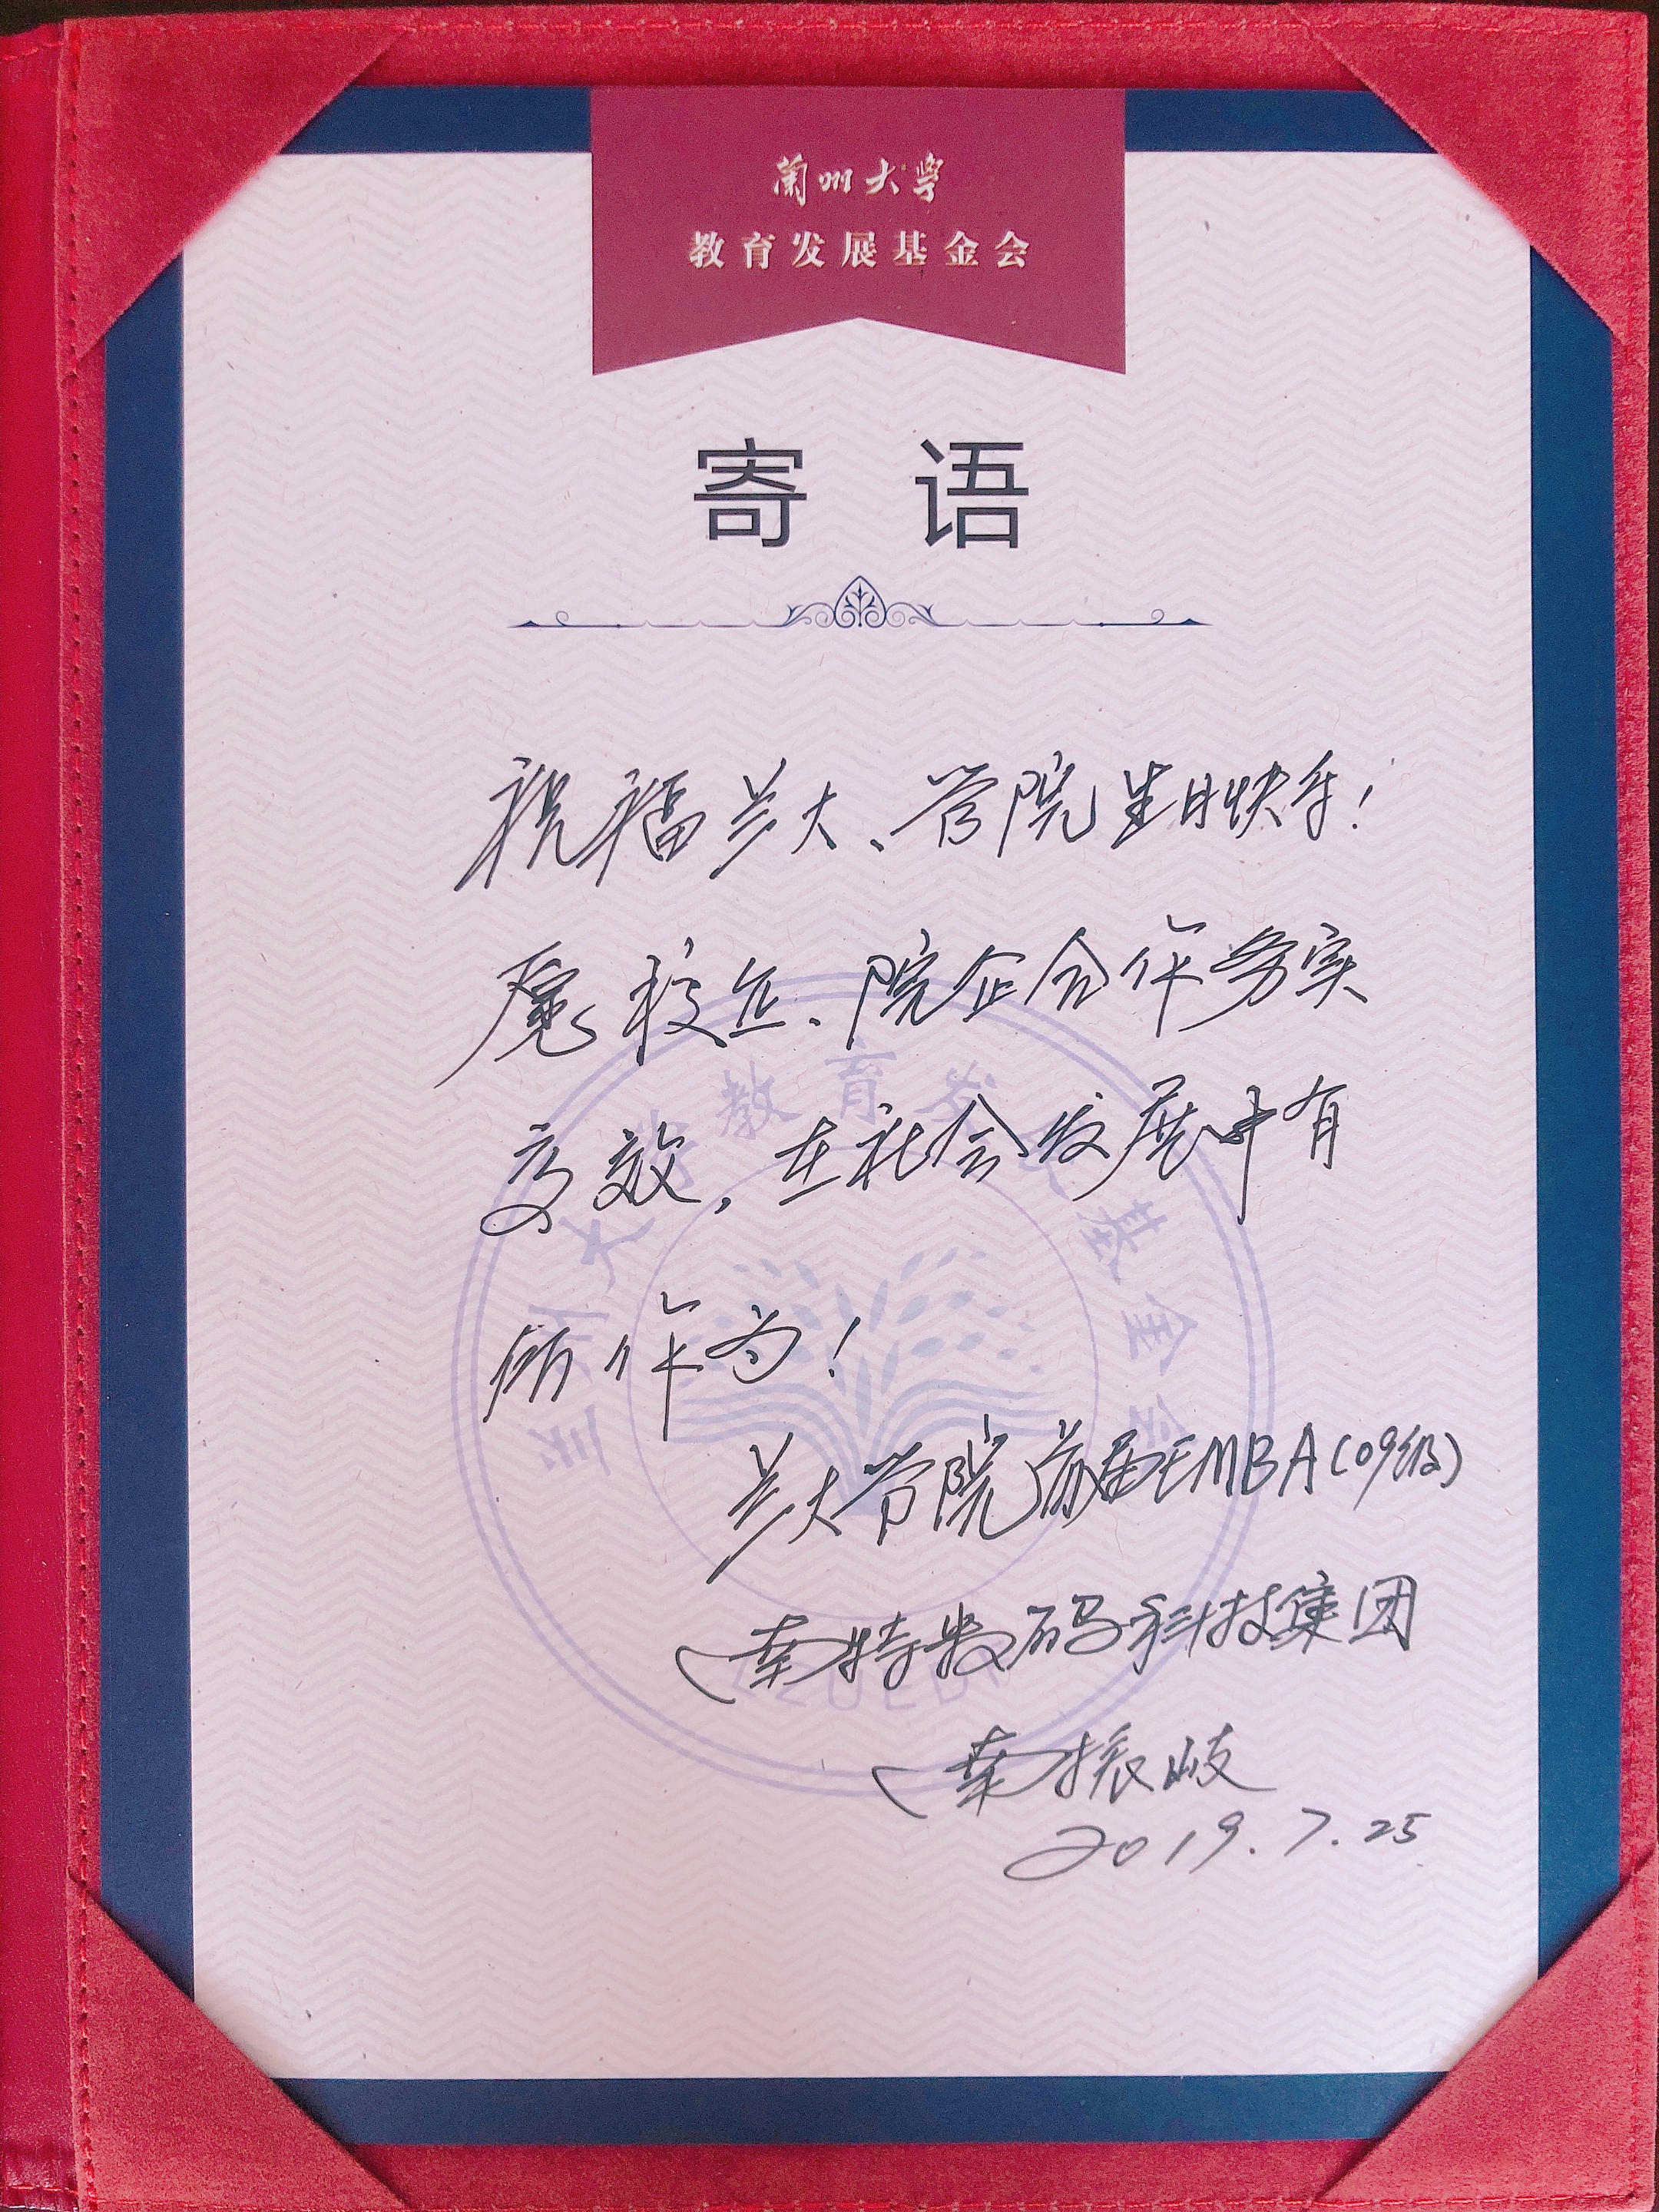 蘭州大學
教育发展基金会
寄语
祝福兰大、管院生日快乐!
愿校企、院企合作务实
高效,在社会发展中有
所作为!
兰大管院首届EMBA(09级)
南特数码科技集团
南振岐
2019.7.25
教育发
基金会